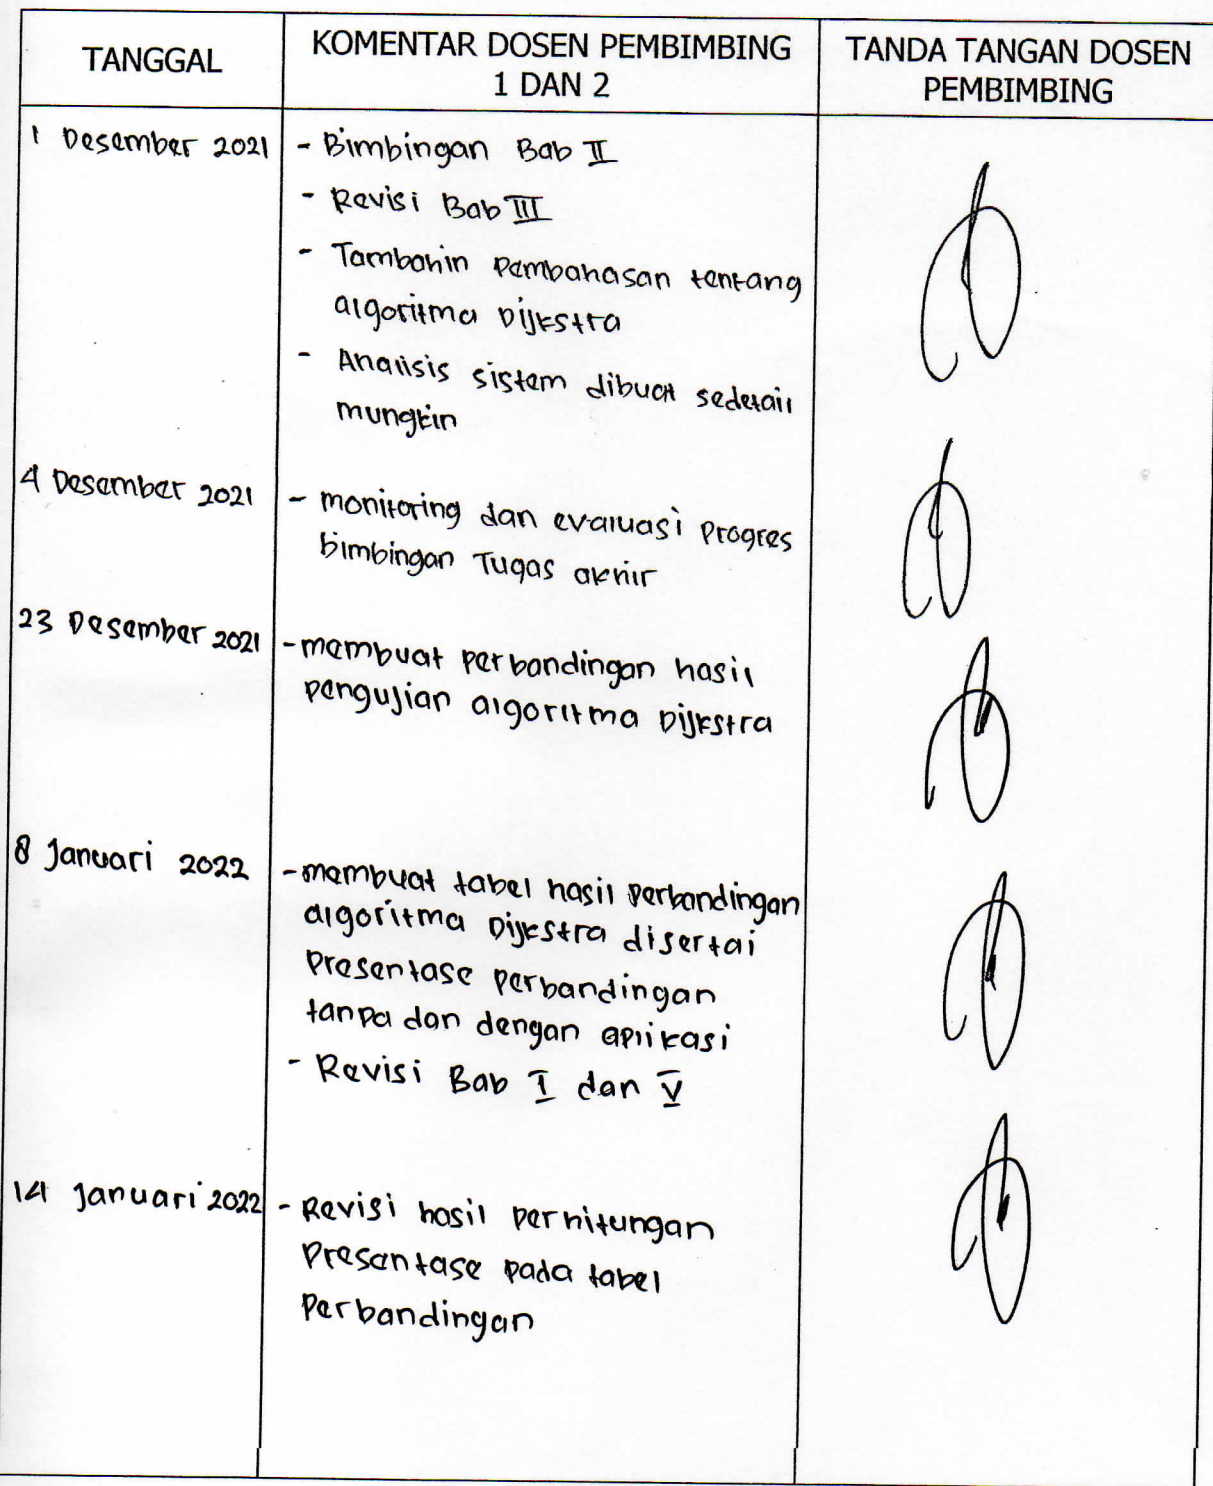 TANGGAL
KOMENTAR DOSEN PEMBIMBING
1 DAN 2
TANDA TANGAN DOSEN
PEMBIMBING
1 Desember 2021
- Bimbingan Bab II
- Revisi Bab III
- Tambahin pembahasan tentang
algoritma Dijkstra
- Analisis sistem dibuat sedetail
mungkin
4 Desember 2021
- monitoring dan evaluasi progres
bimbingan Tugas akhir
23 Desember 2021
- membuat perbandingan hasil
pengujian algoritma Dijkstra
8 Januari 2022
- membuat tabel hasil perbandingan
algoritma Dijkstra disertai
presentase perbandingan
tanpa dan dengan aplikasi
- Revisi Bab I dan V
14 Januari 2022
- Revisi hasil perhitungan
presentase pada tabel
perbandingan